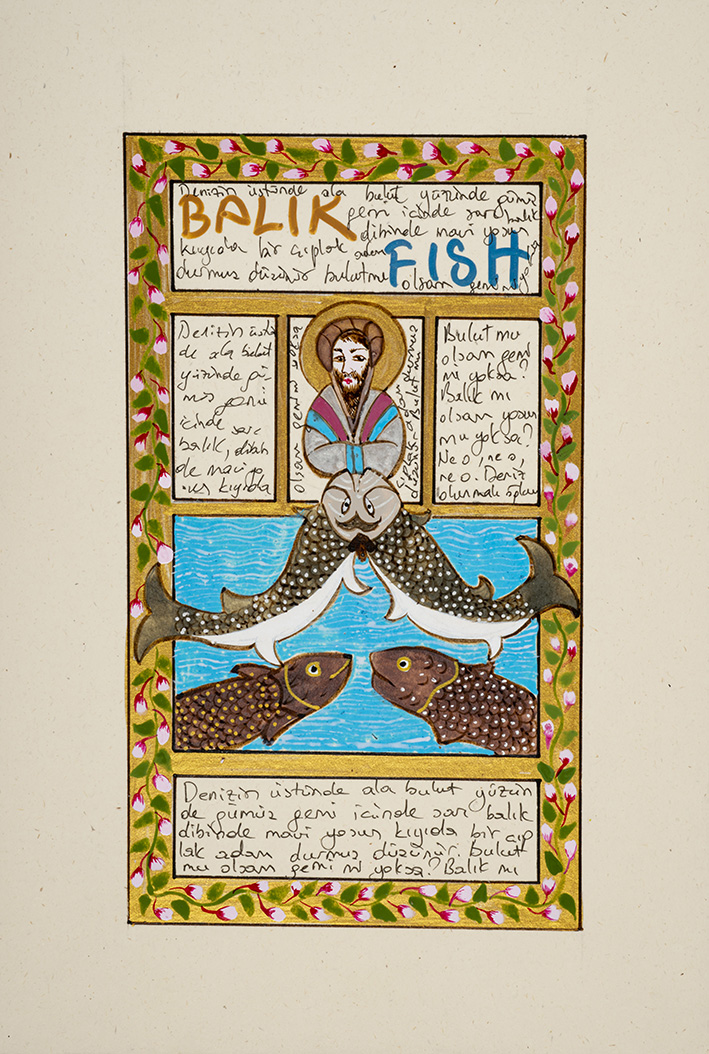 Denizin üstünde ala bulut yüzünde gümü
BALIK
gemi içinde sarı balık
dibinde mavi yosun
kıyıda bir çıplak adam
FISH
durmus düzünür bulut mu olsam gemi mi
Denizin üstün
de ala bulut
yüzünde gü
müs gemi
içinde sarı
balık, dibin
de mavi yo
sun kıyıda
olsam gemi mi yoksa
çıplak adam durmus
düzünür. Bulut mu
Bulut mu
olsam gemi
mi yoksa?
Balık mı
olsam yosun
mu yoksa?
Ne o, ne o,
ne o. Deniz
olunmalı
Denizin üstünde ala bulut yüzün
de gümüs gemi içinde sarı balık
dibinde mavi yosun kıyıda bir çıp
lak adam durmus düzünür. Bulut
mu olsam gemi mi yoksa? Balık mı